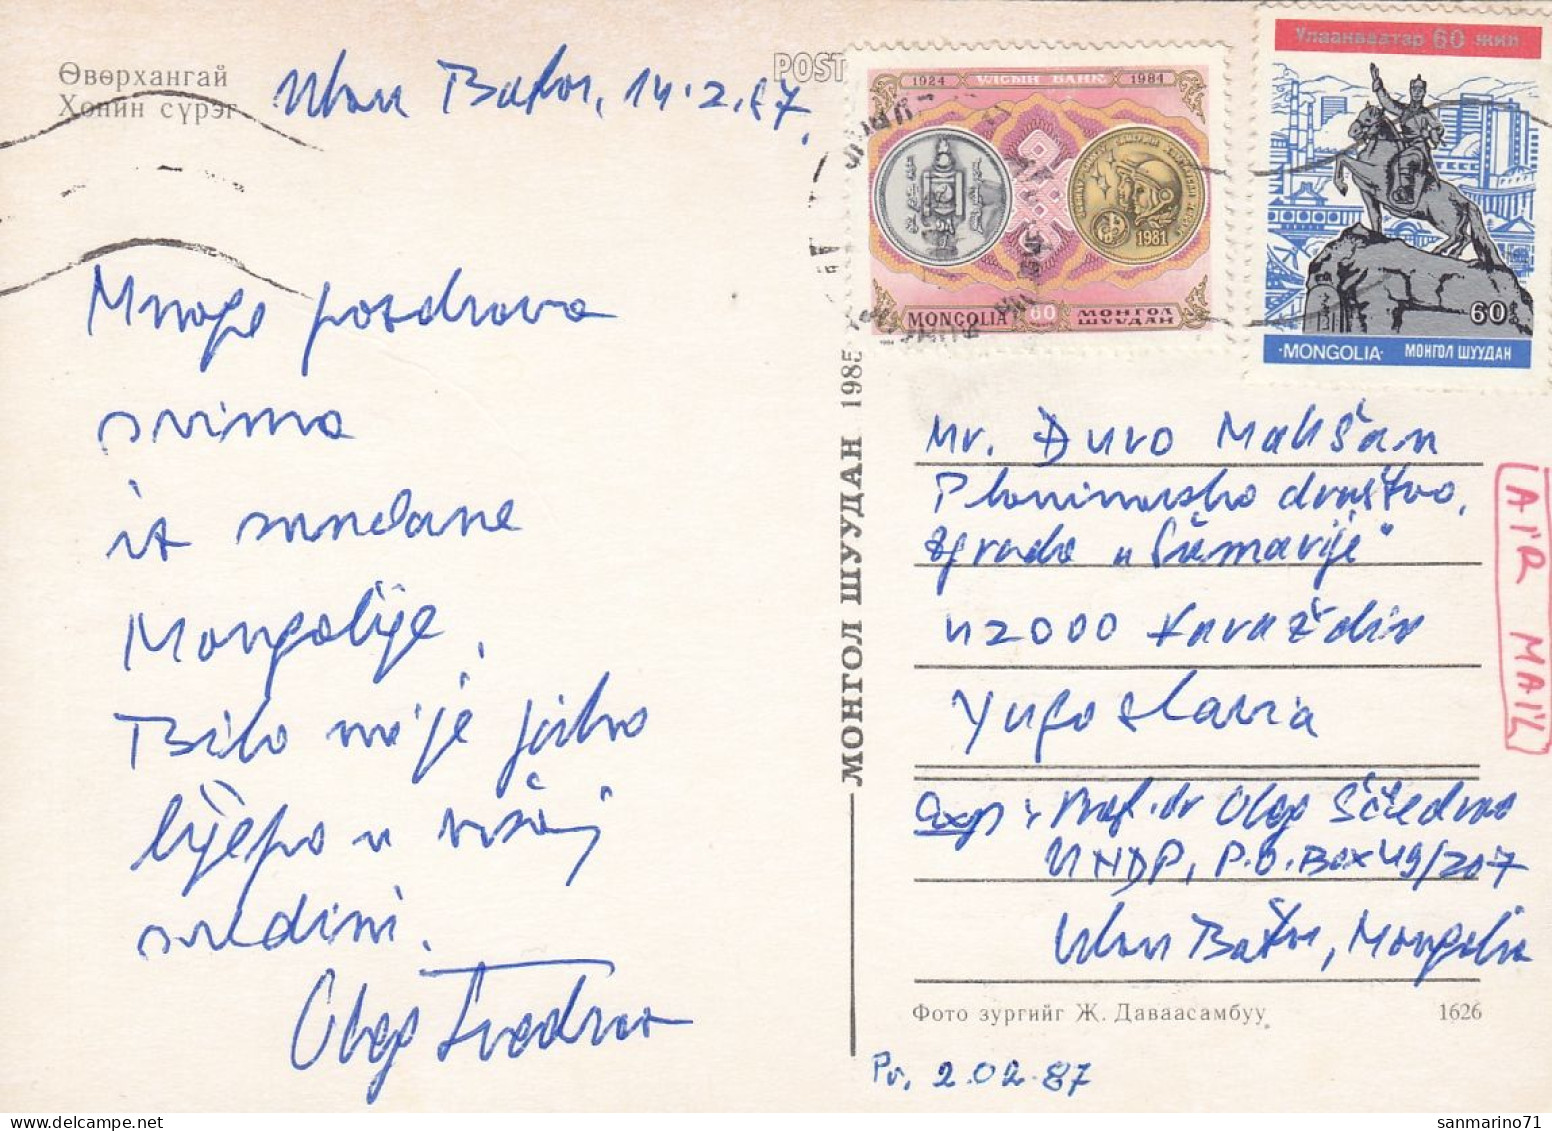 Өвөрхангай
Хонин сүрэг
Ulan Bator, 14.2.87.
POST
1924 УЛСЫН БАНК 1984
1981
MONGOLIA 60 МОНГОЛ ШУУДАН
Улаанбаатар 60 жил
60
·MONGOLIA· МОНГОЛ ШУУДАН
Mnogo pozdrava
svima
iz sunčane
Mongolije,
Bilo mi je jako
lijepo u vašoj
sredini.
Oleg
МОНГОЛ ШУУДАН 1985
Mr. Đuro Makšan
Planinarsko društvo,
zgrada "
42000 Varaždin
Yugoslavia
AIR MAIL
Exp: Prof. dr Oleg
UNDP, P.O. Box 49/207
Ulan Bator, Mongolia
Фото зургийг Ж. Даваасамбуу 1626
2.02.87
sanmarino71